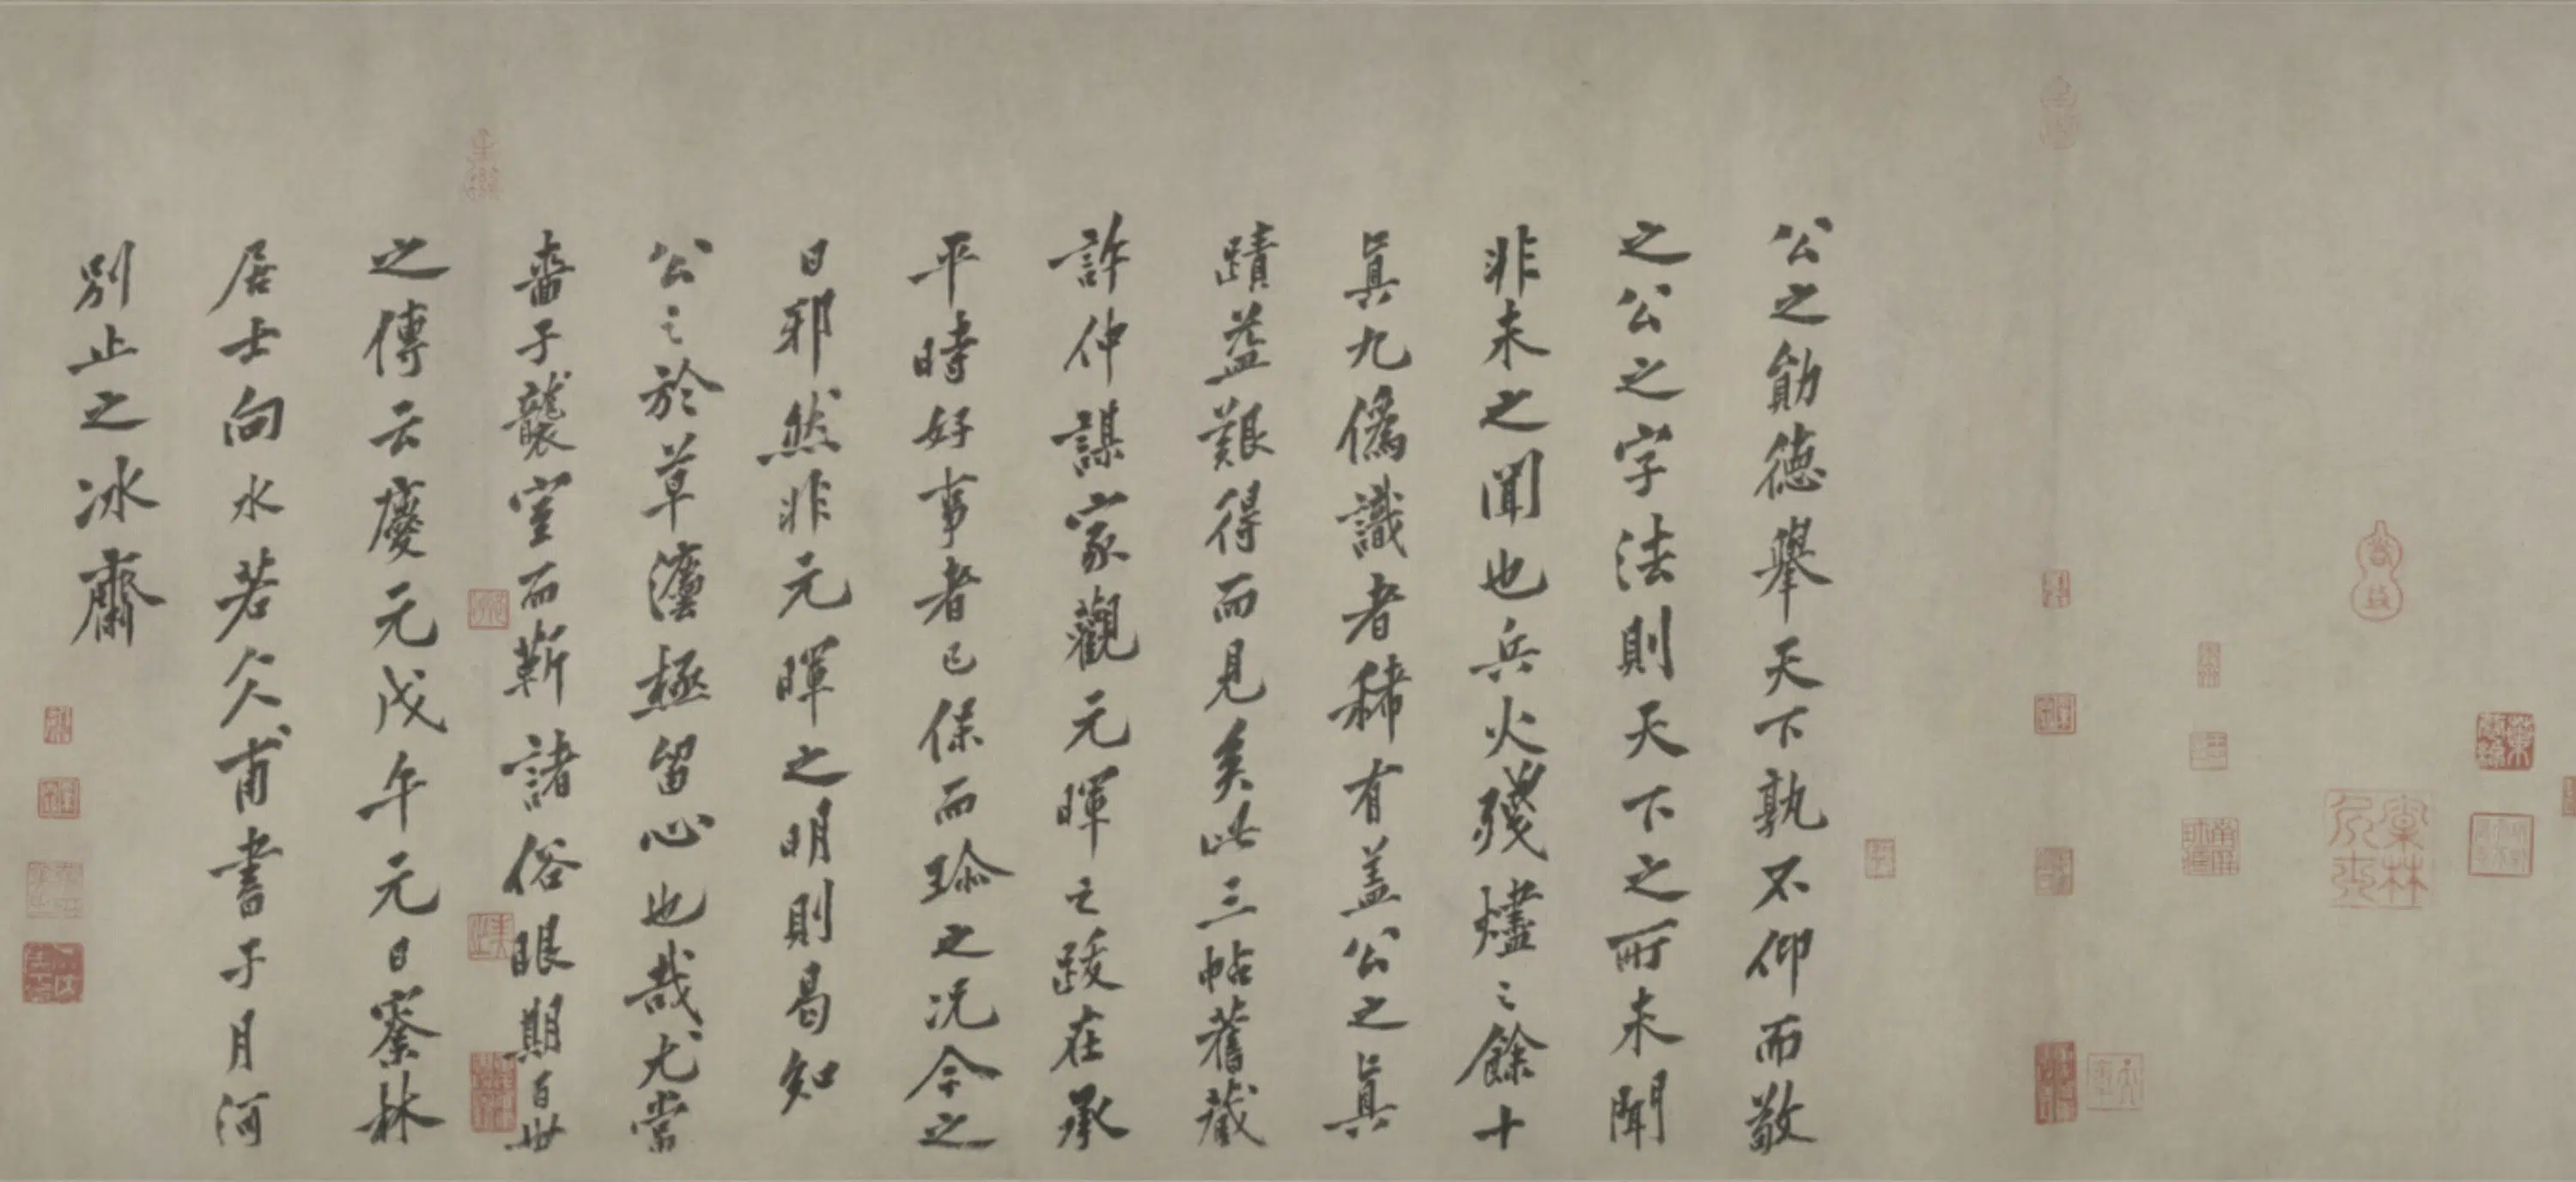 公之勛德舉天下孰不仰而敬
之公之字法則天下之所未聞
非未之聞也兵火殘燼之餘十
眞九僞識者稀有蓋公之眞
蹟益艱得而見矣此三帖舊藏
許仲謀家觀元暉之跋在承
平時好事者已保而珍之况今之
日邪然非元暉之明則曷知
公之於草灋極留心也哉尤當
嗇子襲室而蘄諸俗眼期百世
之傳云慶元戊午元日寮林
居士向水若冰甫書于月河
別止之冰齋